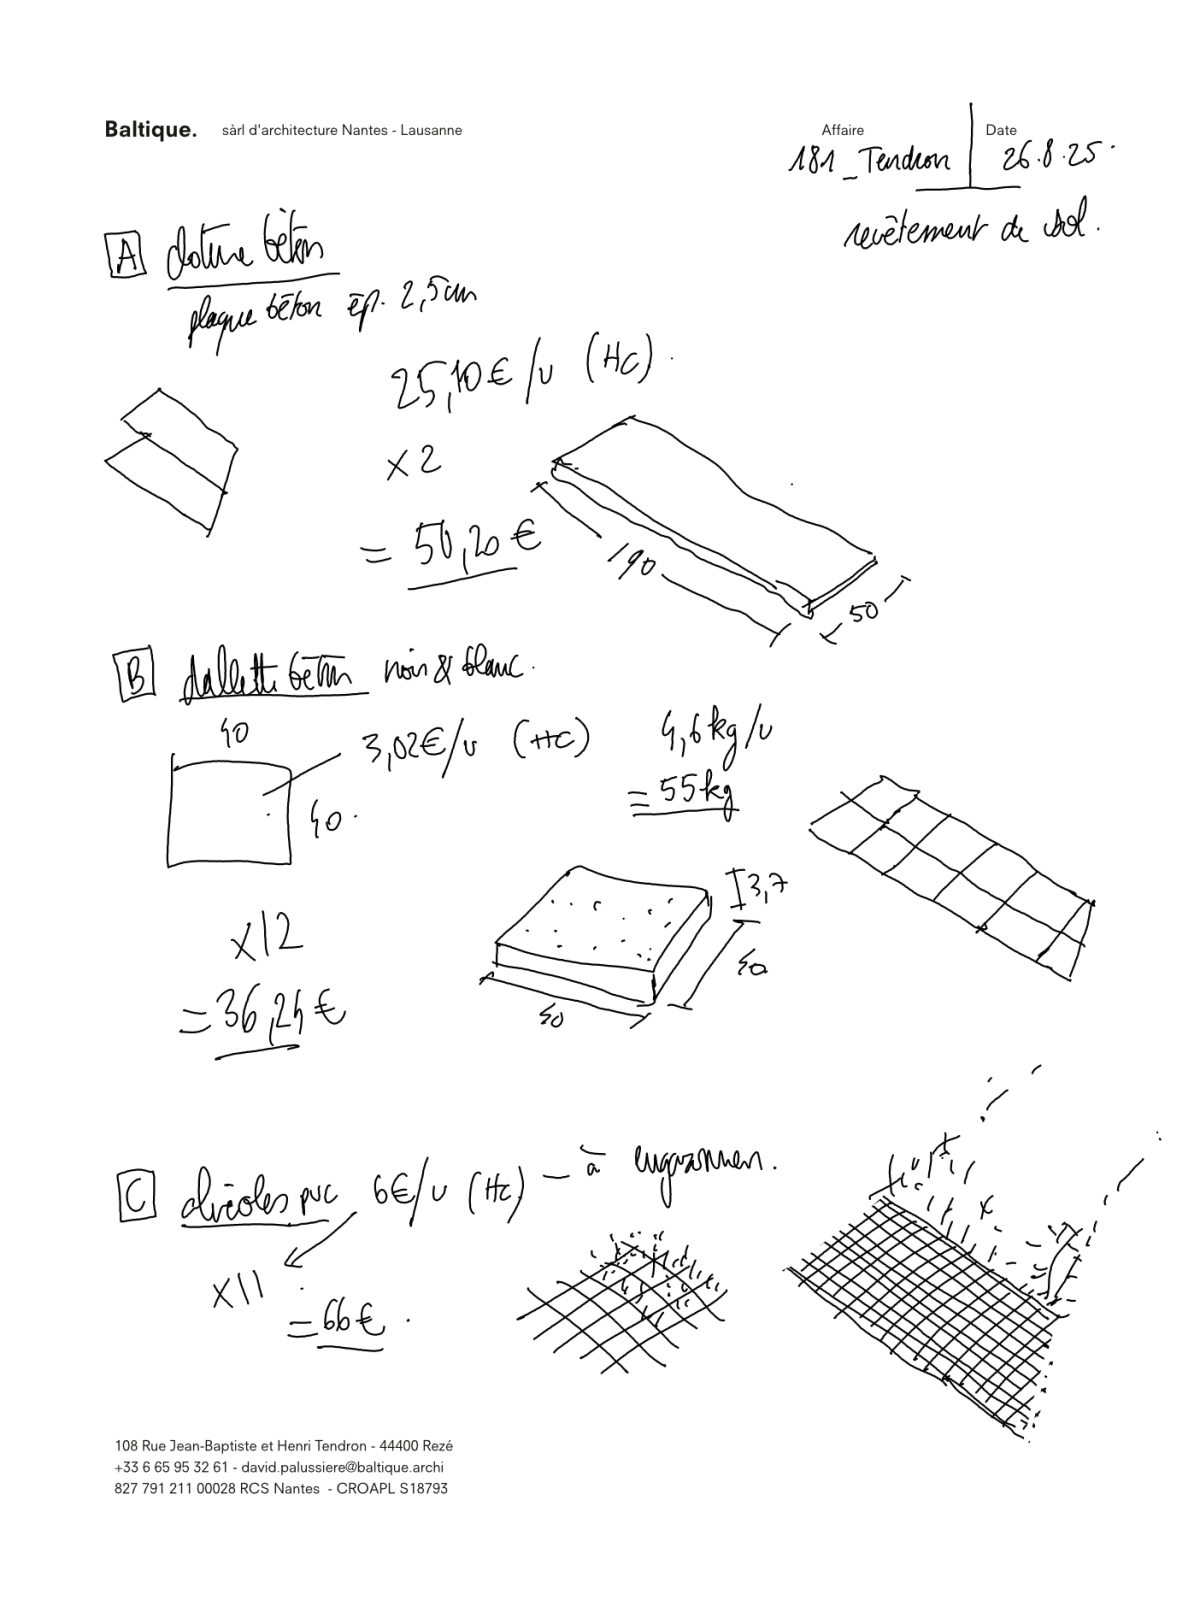 Baltique. sàrl d'architecture Nantes - Lausanne
Affaire Date
181_Tendron 26.8.25.
revêtement de sol.
A clôture béton
plaque béton ép. 2,5cm
25,10€/u (HC).
x2
= 50,20€
190
50
B dallette béton noir & blanc.
40
3,02€/u (HC) 4,6kg/u
= 55kg
40.
3,7
x12
40
= 36,24€
40
C alvéoles pvc 6€/u (HC) – à engazonner.
x11
= 66€.
108 Rue Jean-Baptiste et Henri Tendron - 44400 Rezé
+33 6 65 95 32 61 - david.palussiere@baltique.archi
827 791 211 00028 RCS Nantes - CROAPL S18793